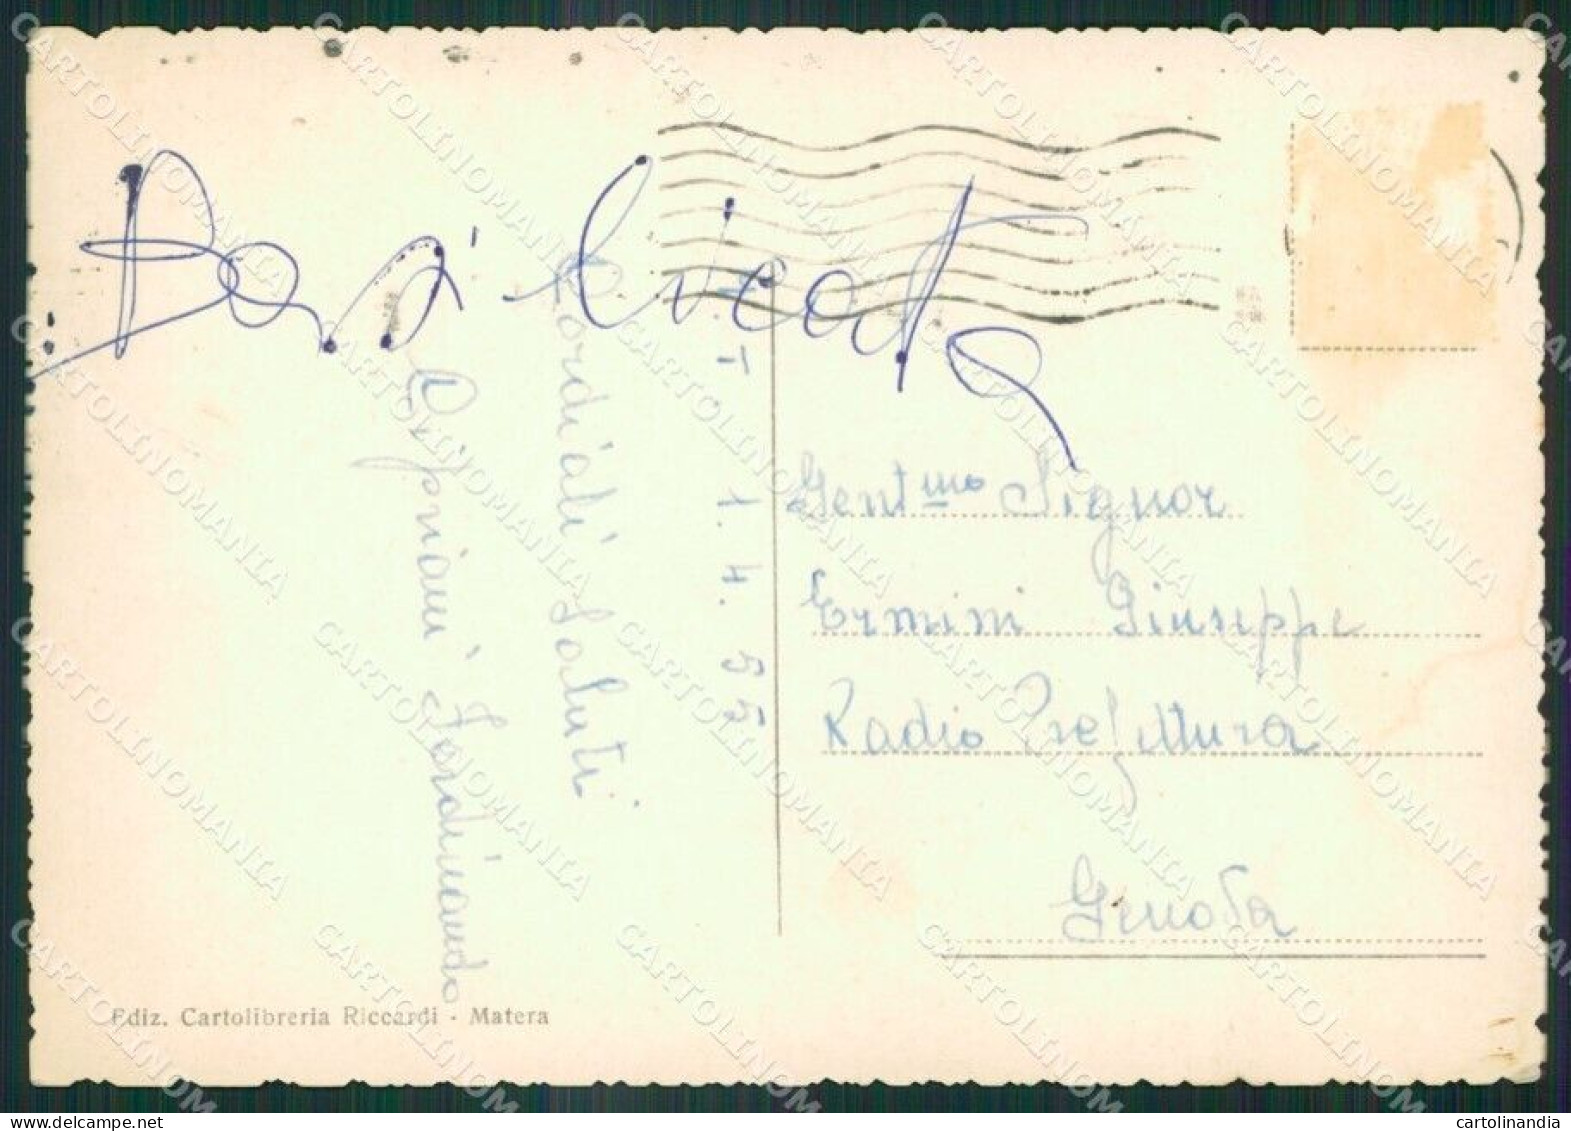 Basilicata
MT 1.4.55
Cordiali Saluti
Cipriani Ferdinando
Gent.mo Signor
Ermini Giuseppe
Radio Prefettura
Genova
Ediz. Cartolibreria Riccardi - Matera
CARTOLINOMANIA
cartolinandia